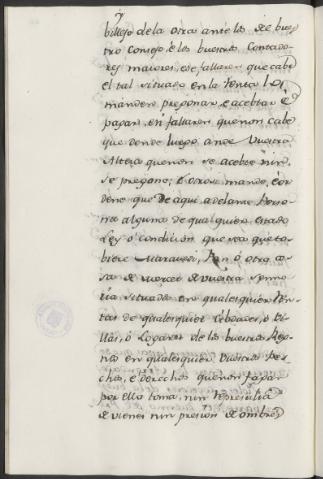 y
billejo de la otra ante los de bues-
tro Consejo, e los buestros Contado-
res maiores, e se fallaren que cabe
el tal situado en la renta lo
manden pregonar, e aceptar e
pagar, en fallaren que non cabe
que donde luego ande Vuestra
Alteza que non se acebte nin
se pregone; e otrosi mande, e or-
dene que de aqui adelante Perso-
na alguna de qualquier estado
Ley o condicion que sea que to-
biere Maravedi, Pan o otra co-
sa de merced de Vuestra Seño-
ria situada en qualesquier Ren-
tas de qualesquier Cibdades, o Vi-
llas, o Logares de los buestros Reg-
nos en qualesquier Vuestros Pe-
chos, e derechos que non fagan
por ello toma, nin represalia
de vienes nin presion de ombres